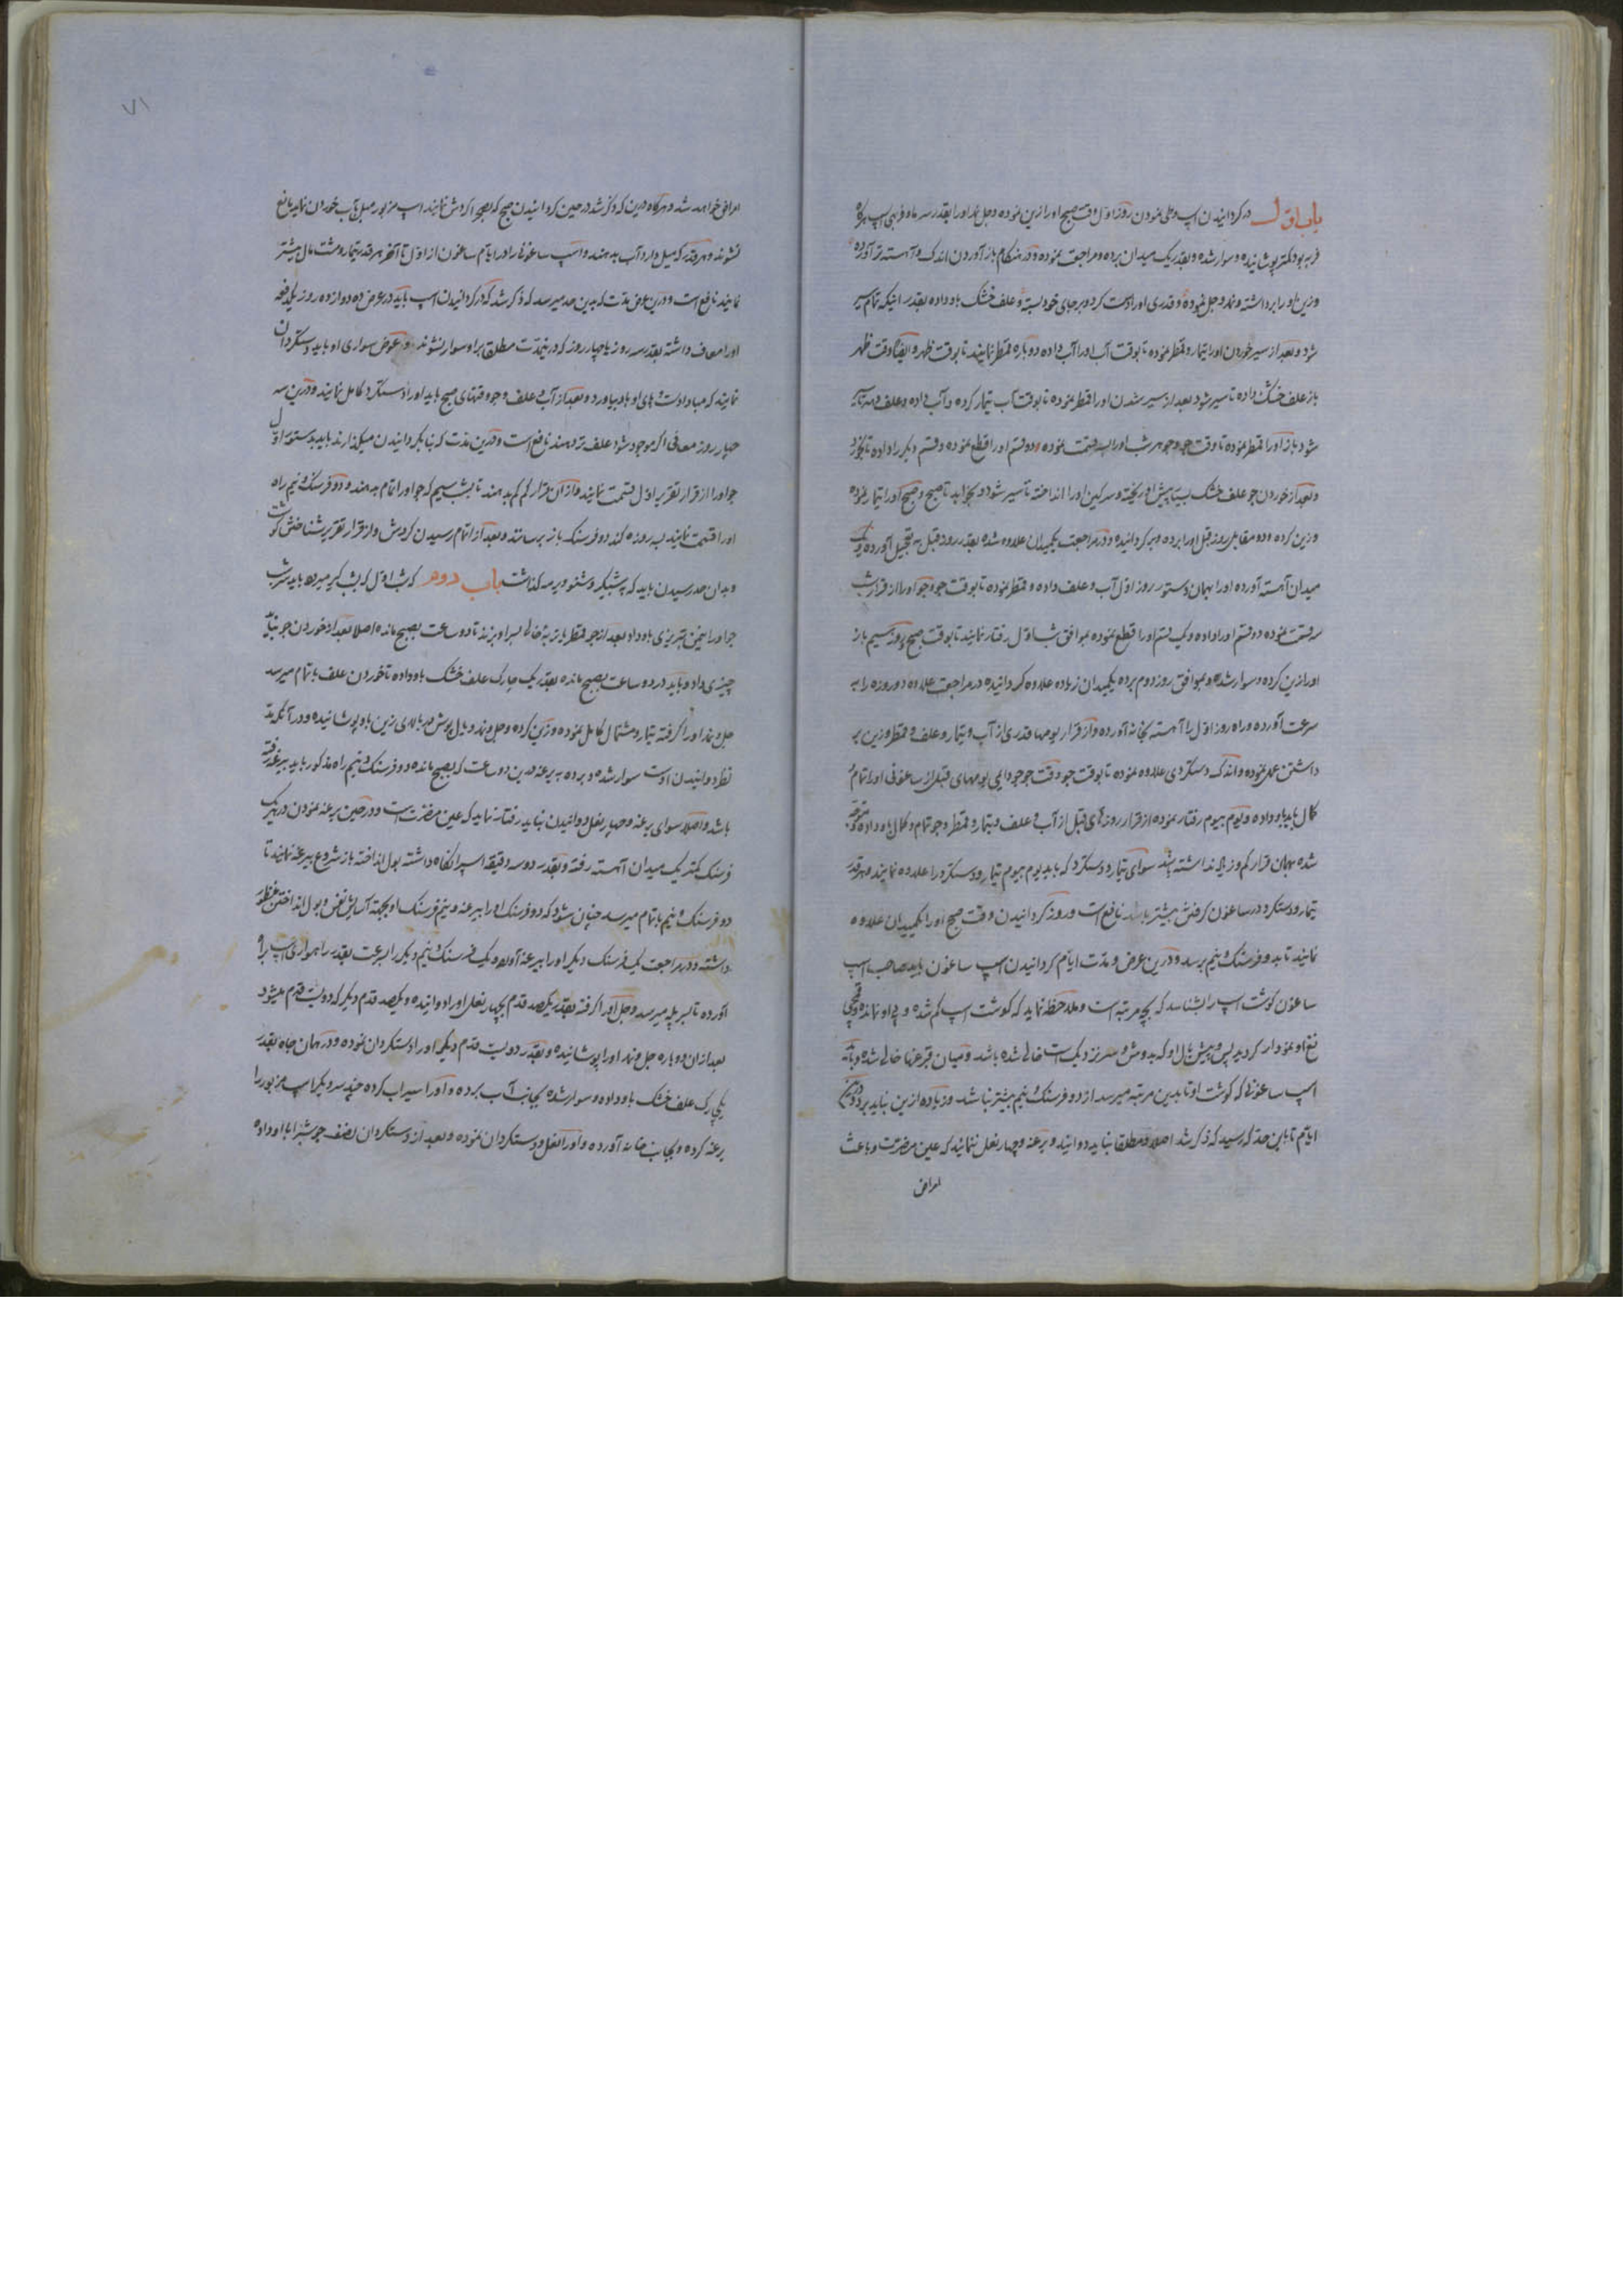 باب اول در کردانیدن اسپ و طی نمودن روز اول وقت صبح اورا زین نموده و جل و نمد اورا بقدر سه ماه فربهی اسپ هرگاه
فربه بود کمتر پوشانیده و سوار شده و بقدر یک میدان برده و مراجعت نموده و در هنکام باز آوردن اندک و آهسته تر آورده
وزین اورا برداشته و نمد و جل نموده و قدری اورا دست کرد و بر جای خود بسته و علف خشک باو داده بقدر اینکه تمام سیر
شود و بعد از سیر خوردن اورا تیمار و قمطر نموده تا بوقت آب اورا آب داده دوباره قمطر نمایند تا بوقت ظهر و ایضا وقت ظهر
باز علف خشک داده تا سیر شود بعد از سیر شدن اورا قمطر نموده تا بوقت آب تیمار کرده و آب داده و علف دهند تا سیر
شود باز اورا قمطر نموده تا وقت جو و جو هر شب اورا سه قسمت نموده دو قسم اورا قطع نموده و قسم دیکر را داده تا بخورد
و بعد از خوردن جو علف خشک بسیار پیش او ریخته و سرکین اورا انداخته تا سیر شود و بخوابد تا صبح و صبح اورا تیمار نموده
وزین کرده و دو مقابل روز قبل اورا برده و بر کردانیده و در مراجعت یکمیدان علاوه شده بقدر روز قبل به تعجیل آورده و یک
میدان آهسته آورده اورا بهمان دستور روز اول آب و علف داده و قمطر نموده تا بوقت جو و جو اورا از قرار شب
سه قسمت نموده دو قسم اورا داده و یک قسم اورا قطع نموده بموافق شب اول رفتار نمایند تا بوقت صبح روز سیم باز
اورا زین کرده و سوار شده و بموافق روز دوم برده یکمیدان زیاده علاوه کردانیده در مراجعت علاوه دو روزه را به
سرعت آورده و راه روز اول را آهسته بخانه آورده و از قرار یومها قدری از آب و تیمار و علف و قمطر وزین بر
داشتن عمل نموده و اندک دستکردی علاوه نموده تا بوقت جو و وقت جو جو دایمی یومهای قبل از ساغونی اورا تمام و
کمال باید باو داده و یوم بیوم رفتار نموده از قرار روزهای قبل از آب و علف و تیمار و قمطر و جو تمام و کمال باو داده متوجه
شده بهمان قرار کم و زیاد نداشته باشد سوای تیمار و دستکرد که باید یوم بیوم تیمار و دستکرد را علاوه نمایند و هر قدر
تیمار و دستکرد در ساغون کرفتن بیشتر باشد نافع است و روز کردانیدن وقت صبح اورا یکمیدان علاوه
نمایند تا بدو فرسنک و نیم برسد و درین عرض و مدت ایام کردانیدن اسپ ساغون باید صاحب اسپ
ساغون کوشت اسپ را بشناسد که بچه مرتبه است و ملاحظه نماید که کوشت اسپ کم شده و پی او نمانده و
او نمودار کردید پس و پیش بال او که بدوش و سر نزدیک است خالی شده باشد و میان قبرغها خالی شده
اسپ ساغونی که کوشت او تا بدین مرتبه میرسد از دو فرسنک و نیم بیشتر نباشد و زیاده ازین نباید برد و درین
ایام تا باین حد که رسید که ذکر شد اصلا و مطلقا نباید دوانید و یرغه و چهار نعل ننمایند که عین مضرت و باعث
امراض
۷۱
امراض خواهد شد و هرگاه درین که ذکر شد در حین کردانیدن صبح که بصحرا کردش نمایند اسپ مزبور میل بآب خوردن نماید مانع
نشوند و هر قدر که میل دارد آب بدهند و اسپ ساغونی را در ایام ساغون از اول تا آخر هر قدر تیمار و مشت مال بیشتر
نمایند نافع است و درین عرض مدت که بدین حد میرسد که ذکر شد که در کردانیدن اسپ باید در عرض ده دوازده روز یکدفعه
اورا معاف داشته بقدر سه روز یا چهار روز که درینمدت مطلقا بر او سوار نشوند و عوض سواری او باید دستکردان
نمایند که مبادا دست و پای او باد بیاورد و بعد از آب و علف و جو وقتهای صبح باید اورا دستکرد کامل نمایند و درین سه
چهار روز معافی اکر موجود شود علف تر دهند نافع است و درین مدت که بنا بکردانیدن میکذارند باید بدستور اول
جو اورا از قرار تقریر اول قسمت نمایند و از آن قرار کم کم بدهند تا بشب سیم که جو اورا تمام بدهند و دو فرسنک و نیم راه
اورا قسمت نمایند سه روزه کند دو فرسنک باز برسانند و بعد از اتمام رسیدن کردش و از قرار تقریر شناختن کوشت
و بدان حد رسیدن باید که بشبکیر و شنو و یرمه کذاشت باب دوم که شب اول که بشب کیر میرود باید سر شب
جو اورا من تبریزی باو داد بعد از جو قمطر یا توبره خالی بسر او بزنند تا دو ساعت بصبح مانده اصلا بعد از خوردن جو نباید
چیزی داد و باید در دو ساعت بصبح مانده بقدر یک چارک علف خشک باو داده تا خوردن علف باتمام میرسد
جل و نمد اورا کرفته تیمار و مشتمال کامل نموده وزین کرده و جل و نمد و بل پوش بر بالای زین باو پوشانیده و در آنکه مد
نظر دوانیدن اوست سوار شده و برده به یرغه درین دو ساعت که بصبح مانده دو فرسنک و نیم راه مذکور باید به یرغه رفته
باشد و اصلا سوای یرغه و چهار نعل و دوانیدن نباید رفتار نماید که عین مضرت است و در حین یرغه نمودن در هر یک
فرسنک کمتر یک میدان آهسته رفته و بقدر دو سه دقیقه اسپرا نکاه داشته بول انداخته باز شروع به یرغه نمایند تا
دو فرسنک و نیم باتمام میرسد چنان شود که دو فرسنک اورا به یرغه و نیم فرسنک او بجهته آسایش نفس و بول انداختن منظور
داشته و در مراجعت یک فرسنک دیکر اورا به یرغه آورده و یک فرسنک و نیم دیکر را بسرعت بقدر راهواری اسپ براه
آورده تا بسر پله میرسد و جل اورا کرفته بقدر یکصد قدم بچهار نعل اورا دوانیده و یکصد قدم دیکر که دویست قدم میشود
بعد از آن دوباره جل و نمد اورا پوشانیده و بقدر دویست قدم دیکر اورا دستکردان نموده و در همان جاه بقدر
یک علف خشک باو داده و سوار شده بجانب آب برده و اورا سیراب کرده سر دیکر اسپ مزبور را
یرغه کرده و بجانب خانه آورده و اورا نعل و دستکردان نموده و بعد از دستکردان نصف جو شبرا باو داده